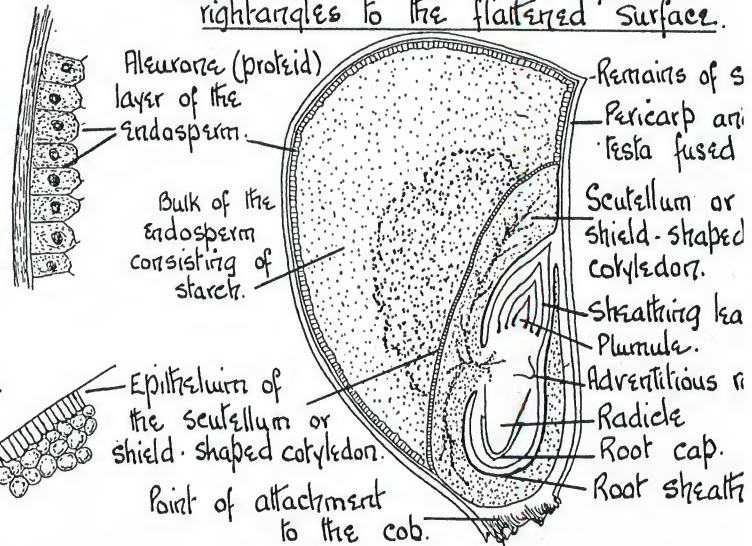 rightangles to the flattened surface.
Aleurone (proteid)
layer of the
endosperm.
Bulk of the
endosperm
consisting of
starch.
Epithelium of
the scutellum or
shield-shaped cotyledon.
Point of attachment
to the cob.
Remains of s
Pericarp an
testa fused
Scutellum or
shield-shaped
cotyledon.
Sheathing lea
Plumule.
Adventitious r
Radicle
Root cap.
Root sheath